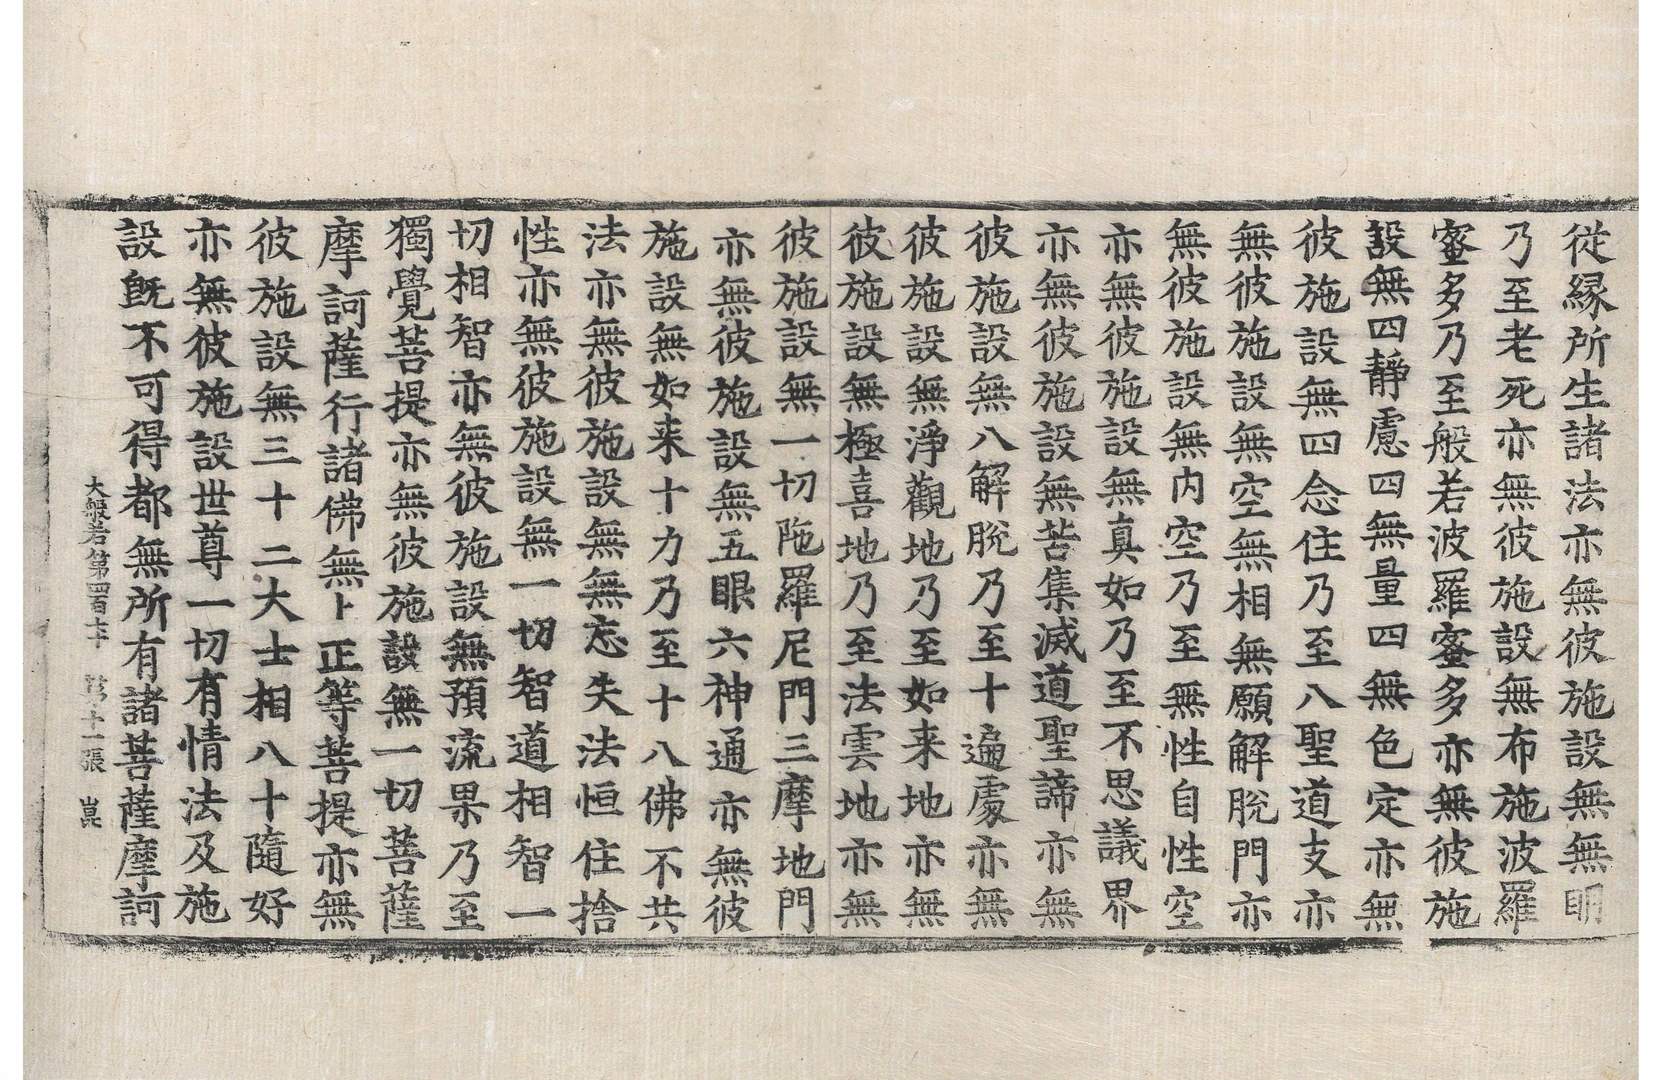 從縁所生諸法亦無彼施設無無明
乃至老死亦無彼施設無布施波羅
蜜多乃至般若波羅蜜多亦無彼施
設無四靜慮四無量四無色定亦無
彼施設無四念住乃至八聖道支亦
無彼施設無空無相無願解脫門亦
無彼施設無内空乃至無性自性空
亦無彼施設無真如乃至不思議界
亦無彼施設無苦集滅道聖諦亦無
彼施設無八解脫乃至十遍處亦無
彼施設無淨觀地乃至如来地亦無
彼施設無極喜地乃至法雲地亦無
彼施設無一切陁羅尼門三摩地門
亦無彼施設無五眼六神通亦無彼
施設無如来十力乃至十八佛不共
法亦無彼施設無無忘失法恒住捨
性亦無彼施設無一切智道相智一
切相智亦無彼施設無預流果乃至
獨覺菩提亦無彼施設無一切菩薩
摩訶薩行諸佛無上正等菩提亦無
彼施設無三十二大士相八十隨好
亦無彼施設世尊一切有情法及施
設旣不可得都無所有諸菩薩摩訶
大般若第四百 第十一張 崑